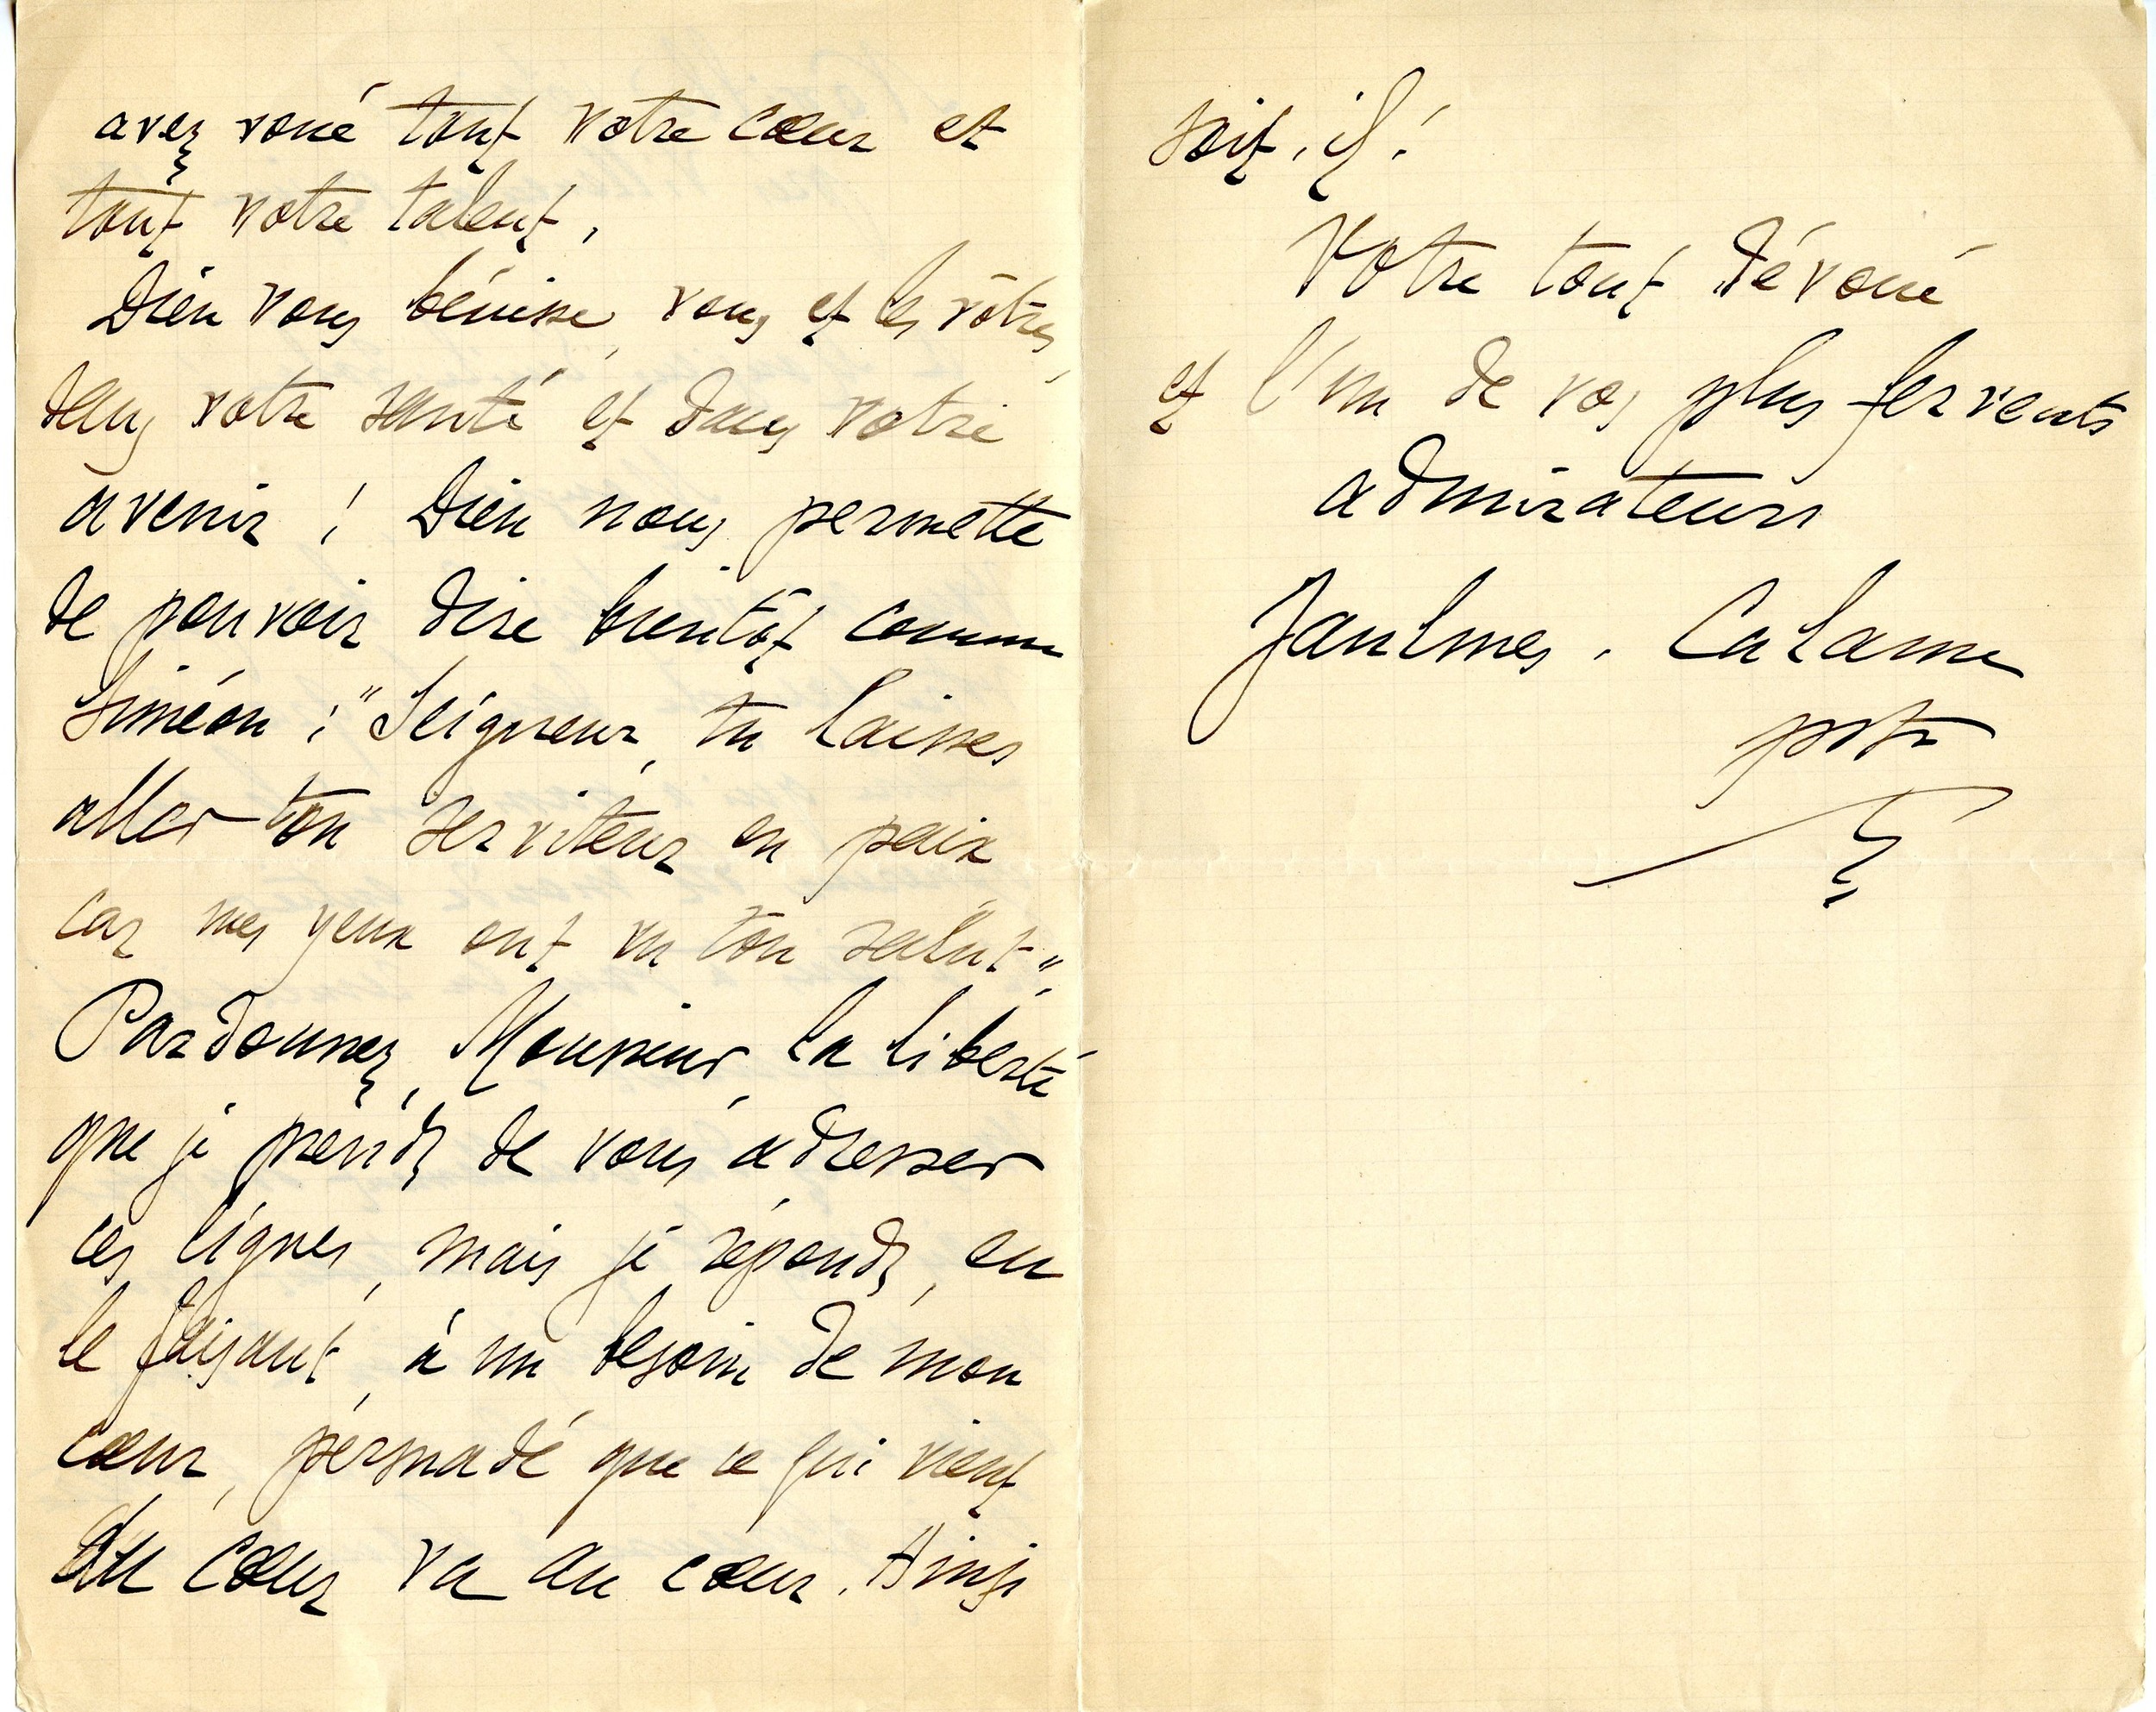 avez voué tout votre cœur et
tout votre talent.
Dieu vous bénisse, vous et les vôtres,
dans votre santé et dans votre
avenir ! Dieu nous permette
de pouvoir dire bientôt comme
Siméon : "Seigneur, tu laisses
aller ton serviteur en paix
car mes yeux ont vu ton salut".
Pardonnez, Monsieur, la liberté
que je prends de vous adresser
ces lignes, mais je réponds, en
le faisant, à un besoin de mon
cœur, persuadé que ce qui vient
du cœur va au cœur. Ainsi
soit-il !
Votre tout dévoué
et l'un de vos plus fervents
admirateurs
Jaulmes-Calame
pstr